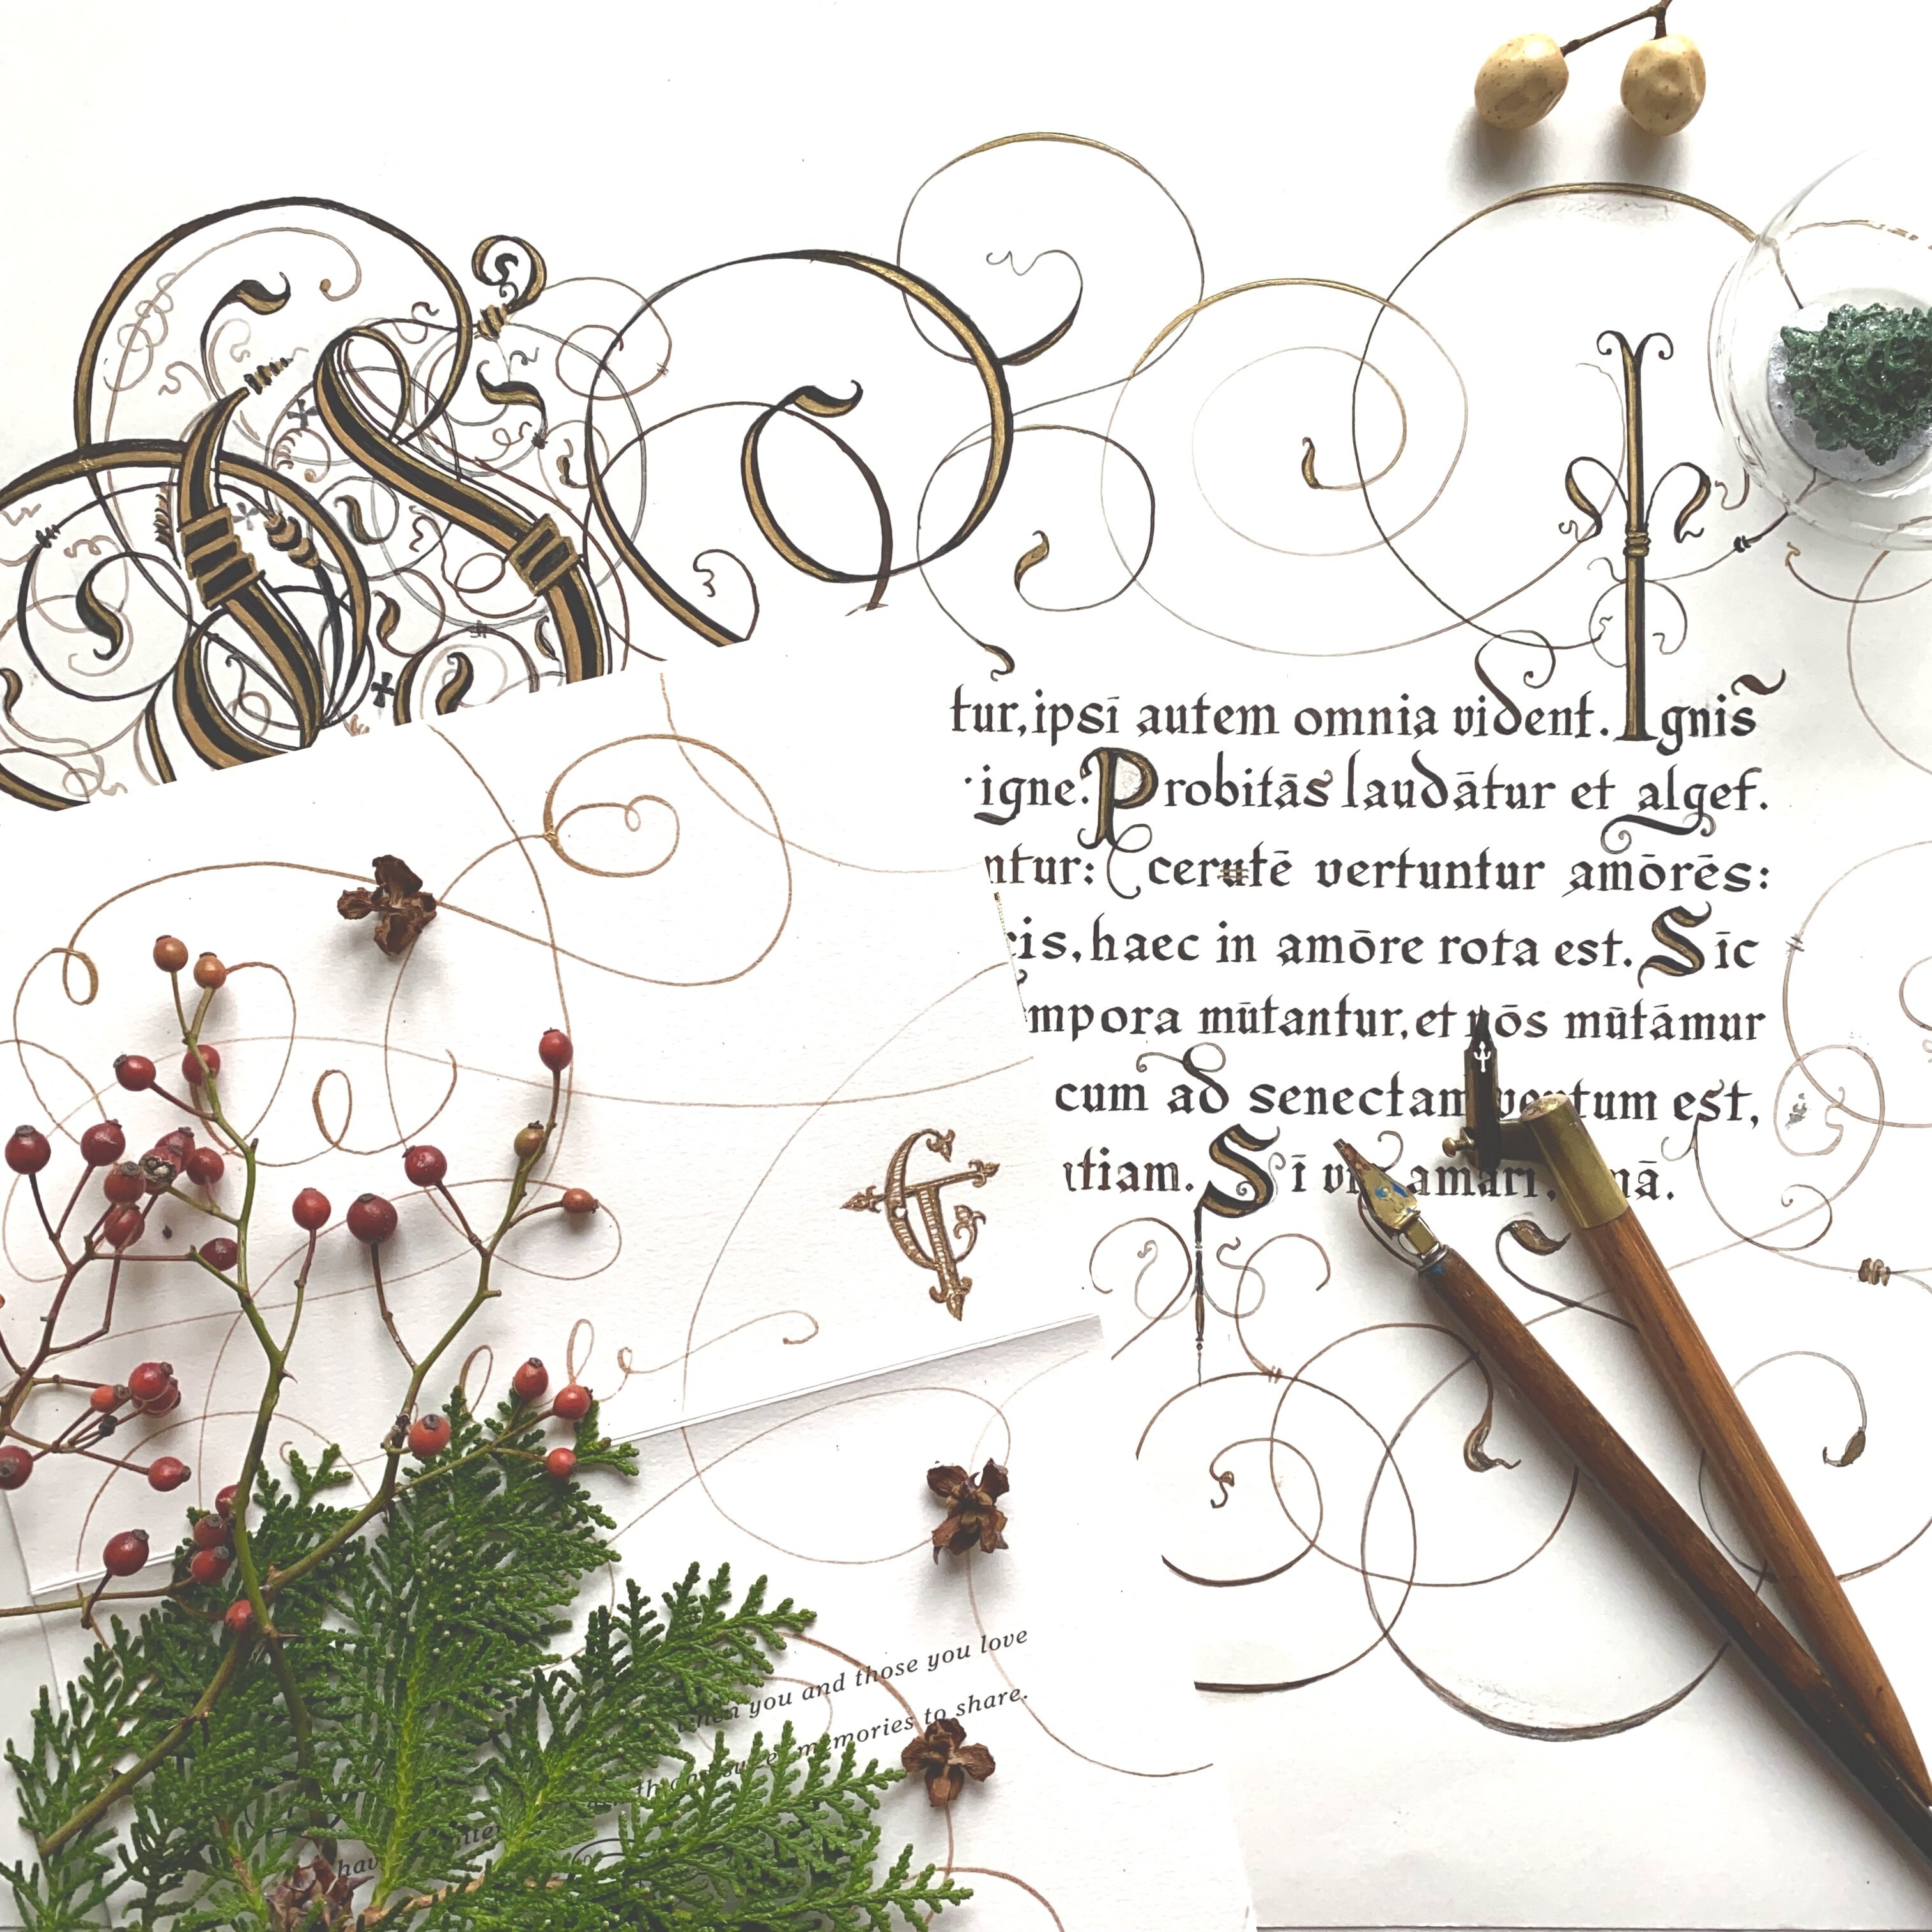 tur, ipsī autem omnia vident. Ignis
igne. Probitās laudātur et alget.
ntur: Ccertē vertuntur amōrēs:
is, haec in amōre rota est. Sīc
mpora mūtantur, et nōs mūtāmur
cum ad senectam ventum est,
tiam. Sī vīs amārī, amā.
G
when you and those you love
memories to share.